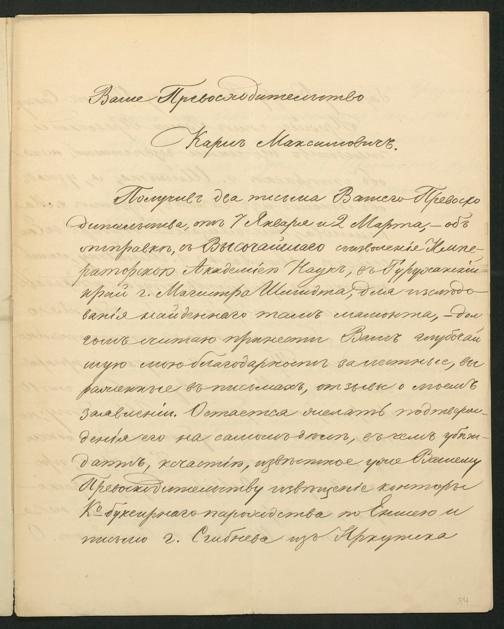 Ваше Превосходительство
Карлъ Максимовичъ.
Получивъ два письма Вашего Превосхо
дительства, отъ 7 Января и 2 Марта, – объ
отправкѣ, съ Высочайшаго соизволенія Импе-
раторскою Академіею Наукъ, въ Туруханскій
край г. Магистра Шмидта, для изслѣдо-
ванія найденнаго тамъ мамонта, – дол
гомъ считаю принести Вамъ глубочай
шую мою благодарность за лестные, вы
раженные въ письмахъ, отзывы о моемъ
заявленіи. Остается желать подтверж-
денія его на самомъ дѣлѣ, въ чемъ убѣж-
даютъ, к счастію, извѣстное уже Вашему
Превосходительству извѣщеніе конторы
Ко буксирнаго пароходства по Енисею и
письмо г. Сгибнева изъ Иркутска
54